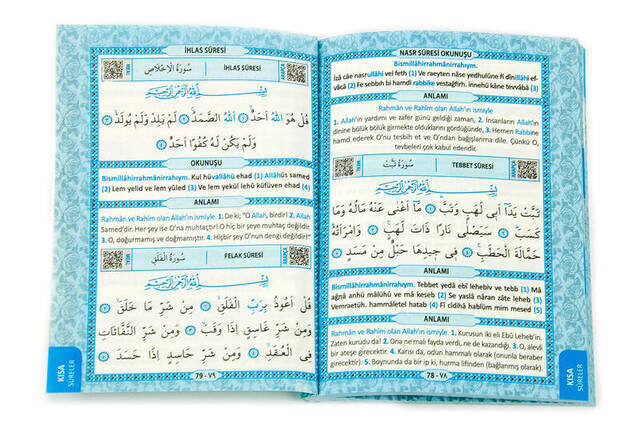 İHLAS SÛRESİ
İHLAS SÛRESİ
سُورَةُ الْاِخْلَاصِ
بِسْــــمِ اللّٰهِ الرَّحْمٰنِ الرَّحٖيمِ
قُلْ هُوَ اللّٰهُ اَحَدٌۚ ﴿١﴾ اَللّٰهُ الصَّمَدُۚ ﴿٢﴾ لَمْ يَلِدْ وَلَمْ يُولَدْۙ ﴿٣﴾
وَلَمْ يَكُنْ لَهُ كُفُوًا اَحَدٌ ﴿٤﴾
OKUNUŞU
Bismillâhirrahmânirrahıym. Kul hüvallâhü ehad (1) Allâhüs samed
(2) Lem yelid ve lem yûled (3) Ve lem yekûl lehû küfüven ehad (4)
ANLAMI
Rahmân ve Rahîm olan Allah'ın ismiyle. 1. De ki; "O Allah, birdir! 2. Allah
Samed'dir. Her şey ise O'na muhtaçtır! O hiç bir şeye muhtaç değildir.
3. O, doğurmamış ve doğmamıştır. 4. Hiçbir şey O'nun dengi değildir!"
سُورَةُ الْفَلَقِ
FELAK SÛRESİ
بِسْــــمِ اللّٰهِ الرَّحْمٰنِ الرَّحٖيمِ
قُلْ اَعُوذُ بِرَبِّ الْفَلَقِۙ ﴿١﴾ مِنْ شَرِّ مَا خَلَقَۙ ﴿٢﴾
وَمِنْ شَرِّ غَاسِقٍ اِذَا وَقَبَۙ ﴿٣﴾ وَمِنْ شَرِّ النَّفَّاثَاتِ
فِى الْعُقَدِۙ ﴿٤﴾ وَمِنْ شَرِّ حَاسِدٍ اِذَا حَسَدَ ﴿٥﴾
79 - ٧٩
KISA
SÛRELER
NASR SÛRESİ OKUNUŞU
Bismillâhirrahmânirrahıym.
İzâ câe nasrullâhi vel feth (1) Ve raeyten nâse yedhulûne fî dînillâhi ef-
vâcâ (2) Fe sebbih bi hamdi rabbike vestağfirh. innehû kâne tevvâbâ (3)
ANLAMI
Rahmân ve Rahîm olan Allah'ın ismiyle
1. Allah'ın yardımı ve zafer günü geldiği zaman, 2. İnsanların Allah'ın
dinine bölük bölük girmekte olduklarını gördüğünde, 3. Hemen Rabbine
hamd ederek O'nu tesbih et ve O'ndan bağışlanma dile. Çünkü O,
tevbeleri çok kabul edendir.
سُورَةُ تَبَّتْ
TEBBET SÛRESİ
ARAPÇA
بِسْــــمِ اللّٰهِ الرَّحْمٰنِ الرَّحٖيمِ
تَبَّتْ يَدَٓا اَبٖى لَهَبٍ وَتَبَّۜ ﴿١﴾ مَٓا اَغْنٰى عَنْهُ مَالُهُ وَمَا
كَسَبَۜ ﴿٢﴾ سَيَصْلٰى نَارًا ذَاتَ لَهَبٍۚ ﴿٣﴾ وَامْرَاَتُهُۜ
حَمَّالَةَ الْحَطَبِۚ ﴿٤﴾ فٖى جٖيدِهَا حَبْلٌ مِنْ مَسَدٍ ﴿٥﴾
ANLAMI
Bismillâhirrahmânirrahıym. Tebbet yedâ ebî lehebiv ve tebb (1) Mâ
ağnâ anhü mâlühû ve mâ keseb (2) Se yaslâ nâran zâte leheb (3)
Vemraetüh, hammâletel hatab (4) Fî cîdihâ hablüm mim mesed (5)
ANLAMI
Rahmân ve Rahîm olan Allah'ın ismiyle. 1. Kurusun iki eli Ebû Leheb'in.
Zaten kurudu da! 2. Ona ne malı fayda verdi, ne de kazandığı. 3. O, alevli
bir ateşe girecektir. 4. Karısı da, odun hammalı olarak (onunla beraber
girecektir). 5. Boynunda da bir ip ki, hurma lifinden (bağlanmış olarak).
78 - ٧٨
KISA
SÛRELER